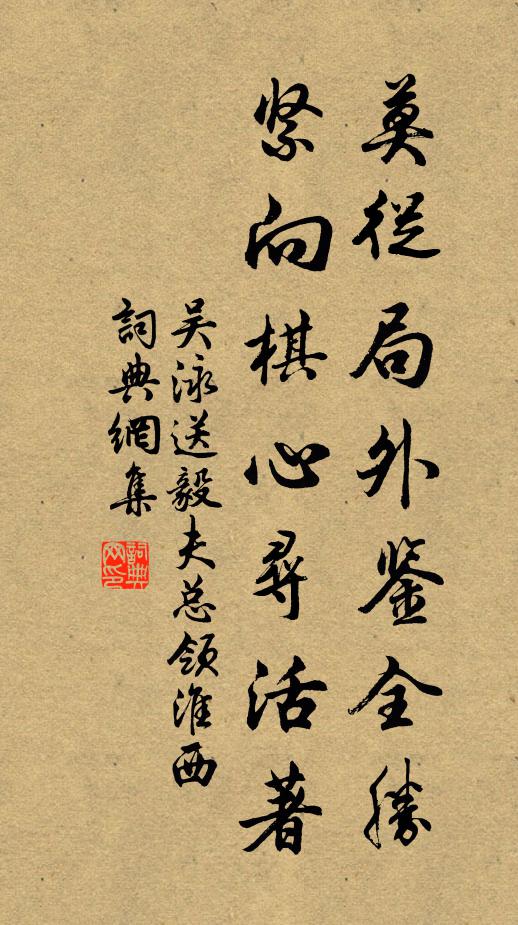 莫從局外鉴全勝
紧向棋心尋活著
吴泳送毅夫总领淮西
詞典網集
詞典
网印